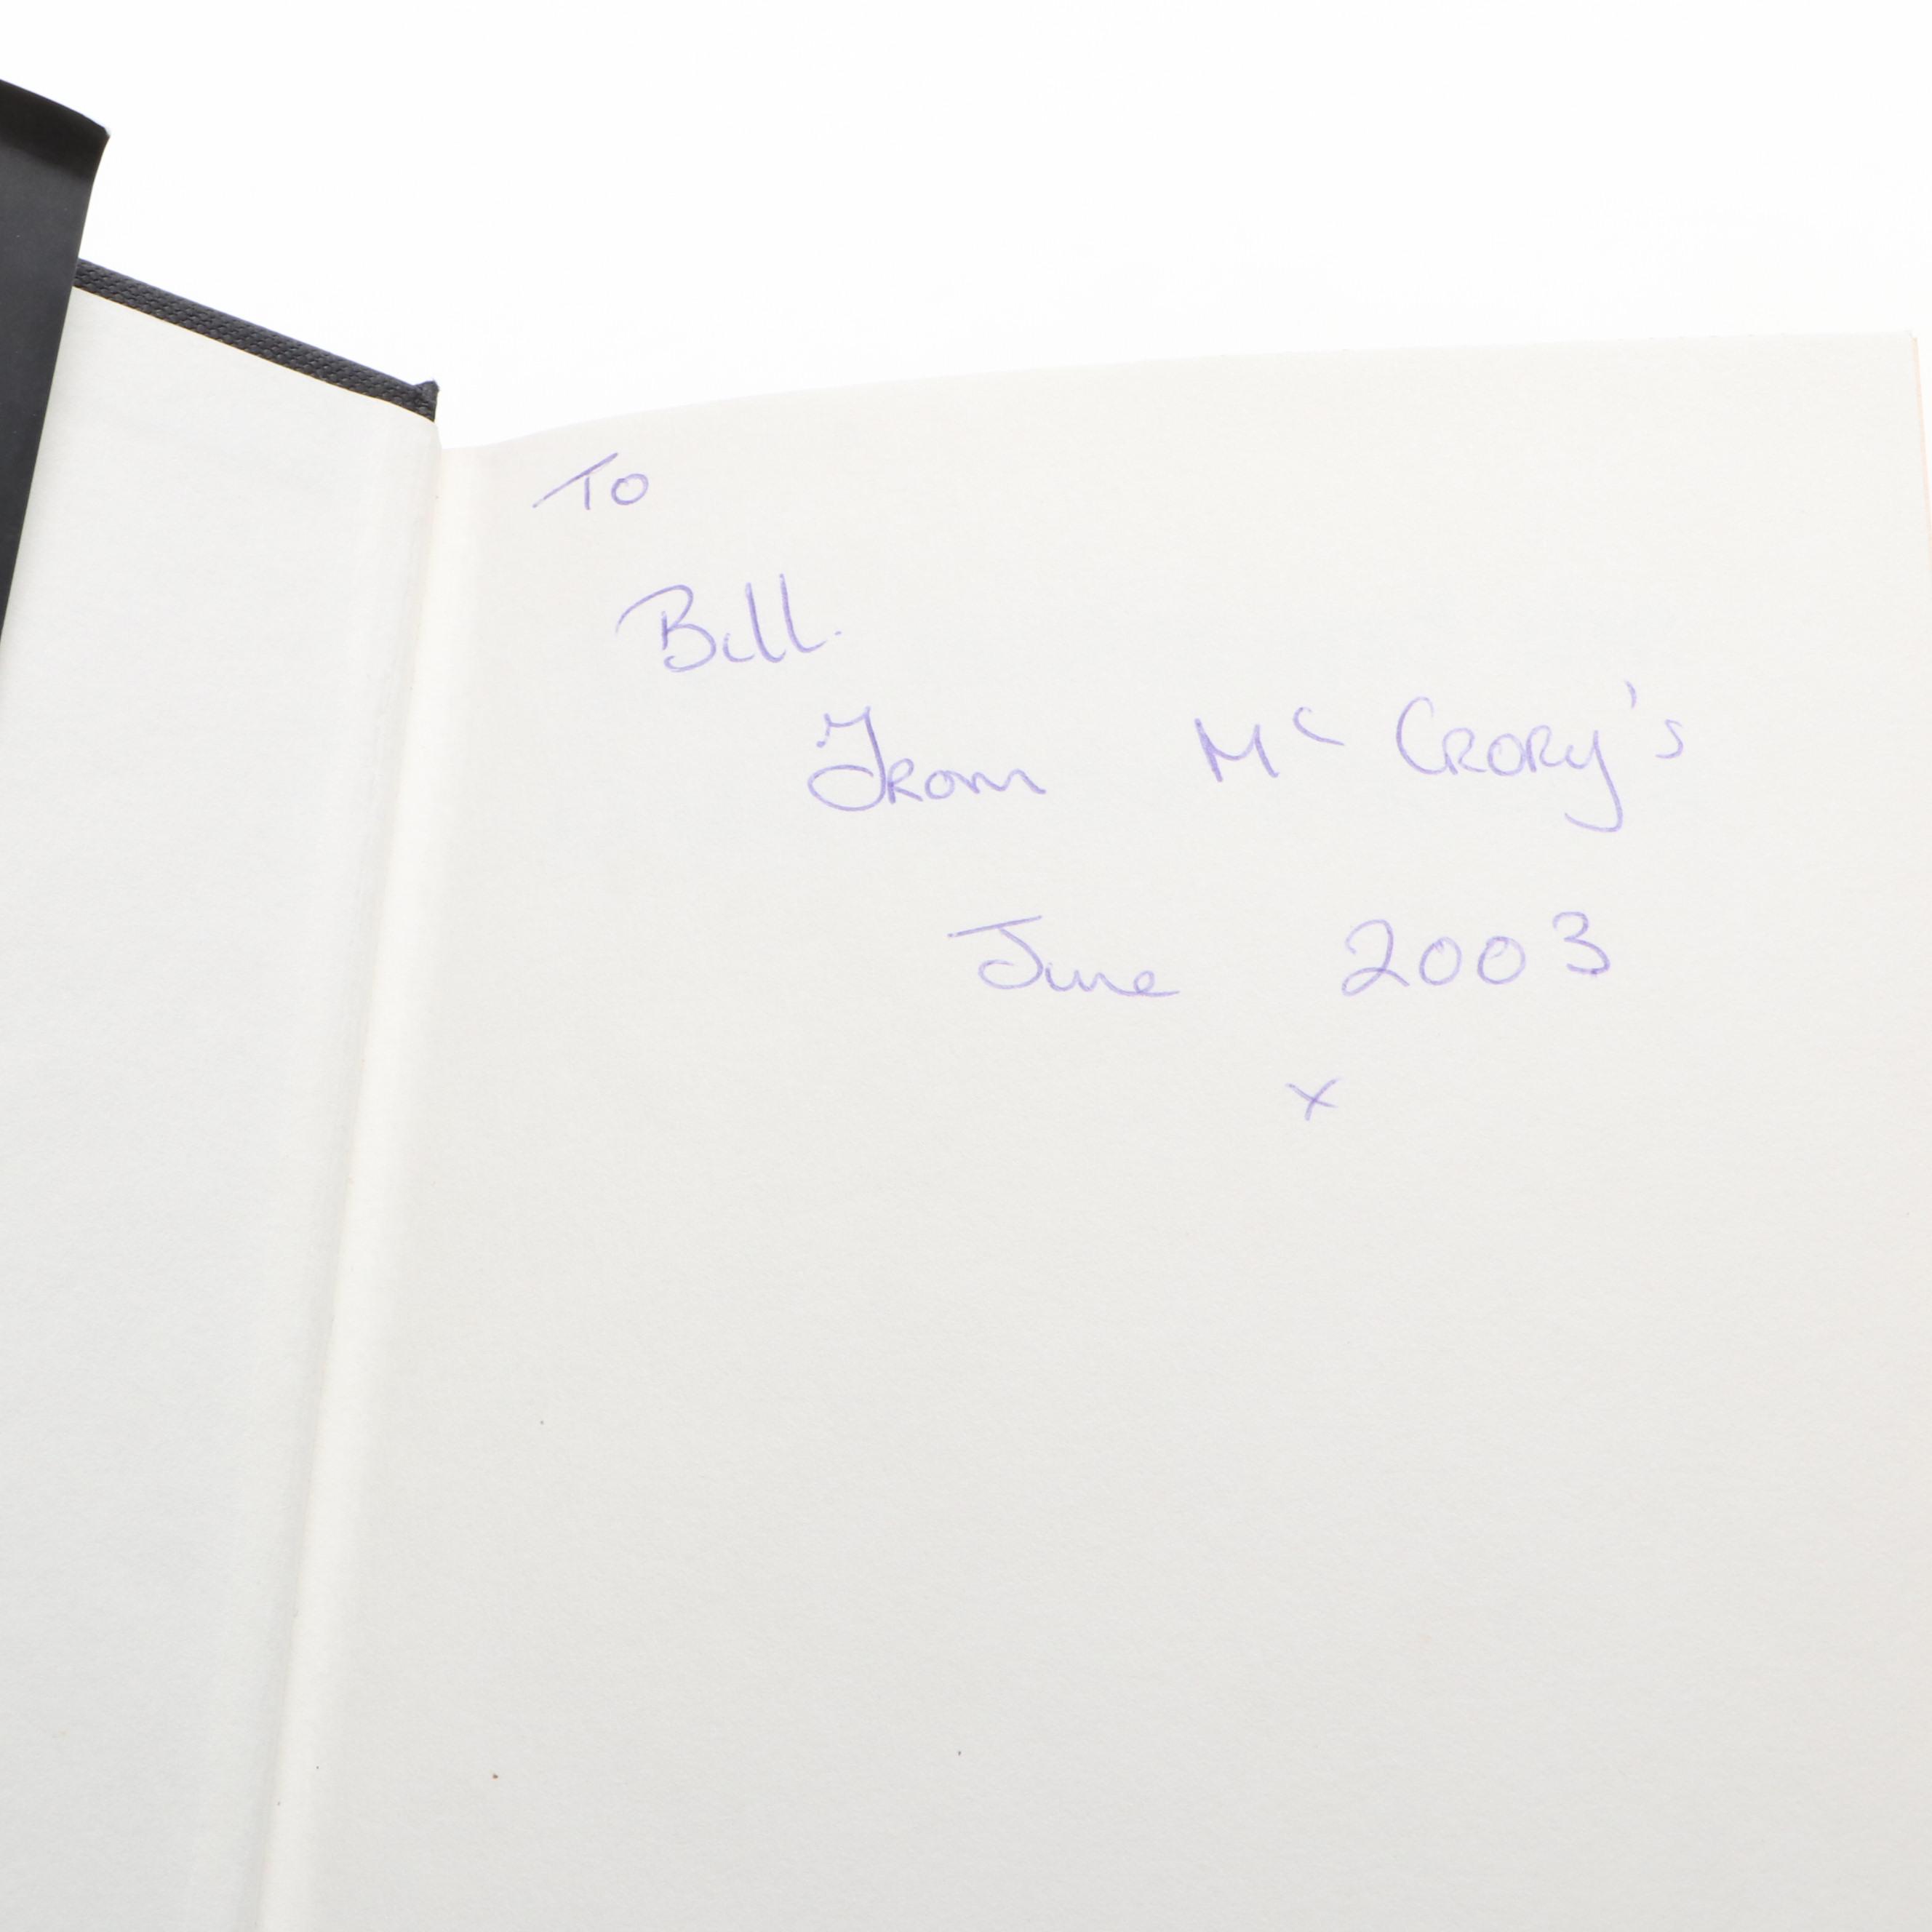 To
Bill.
From Mc Crory's
June 2003
x